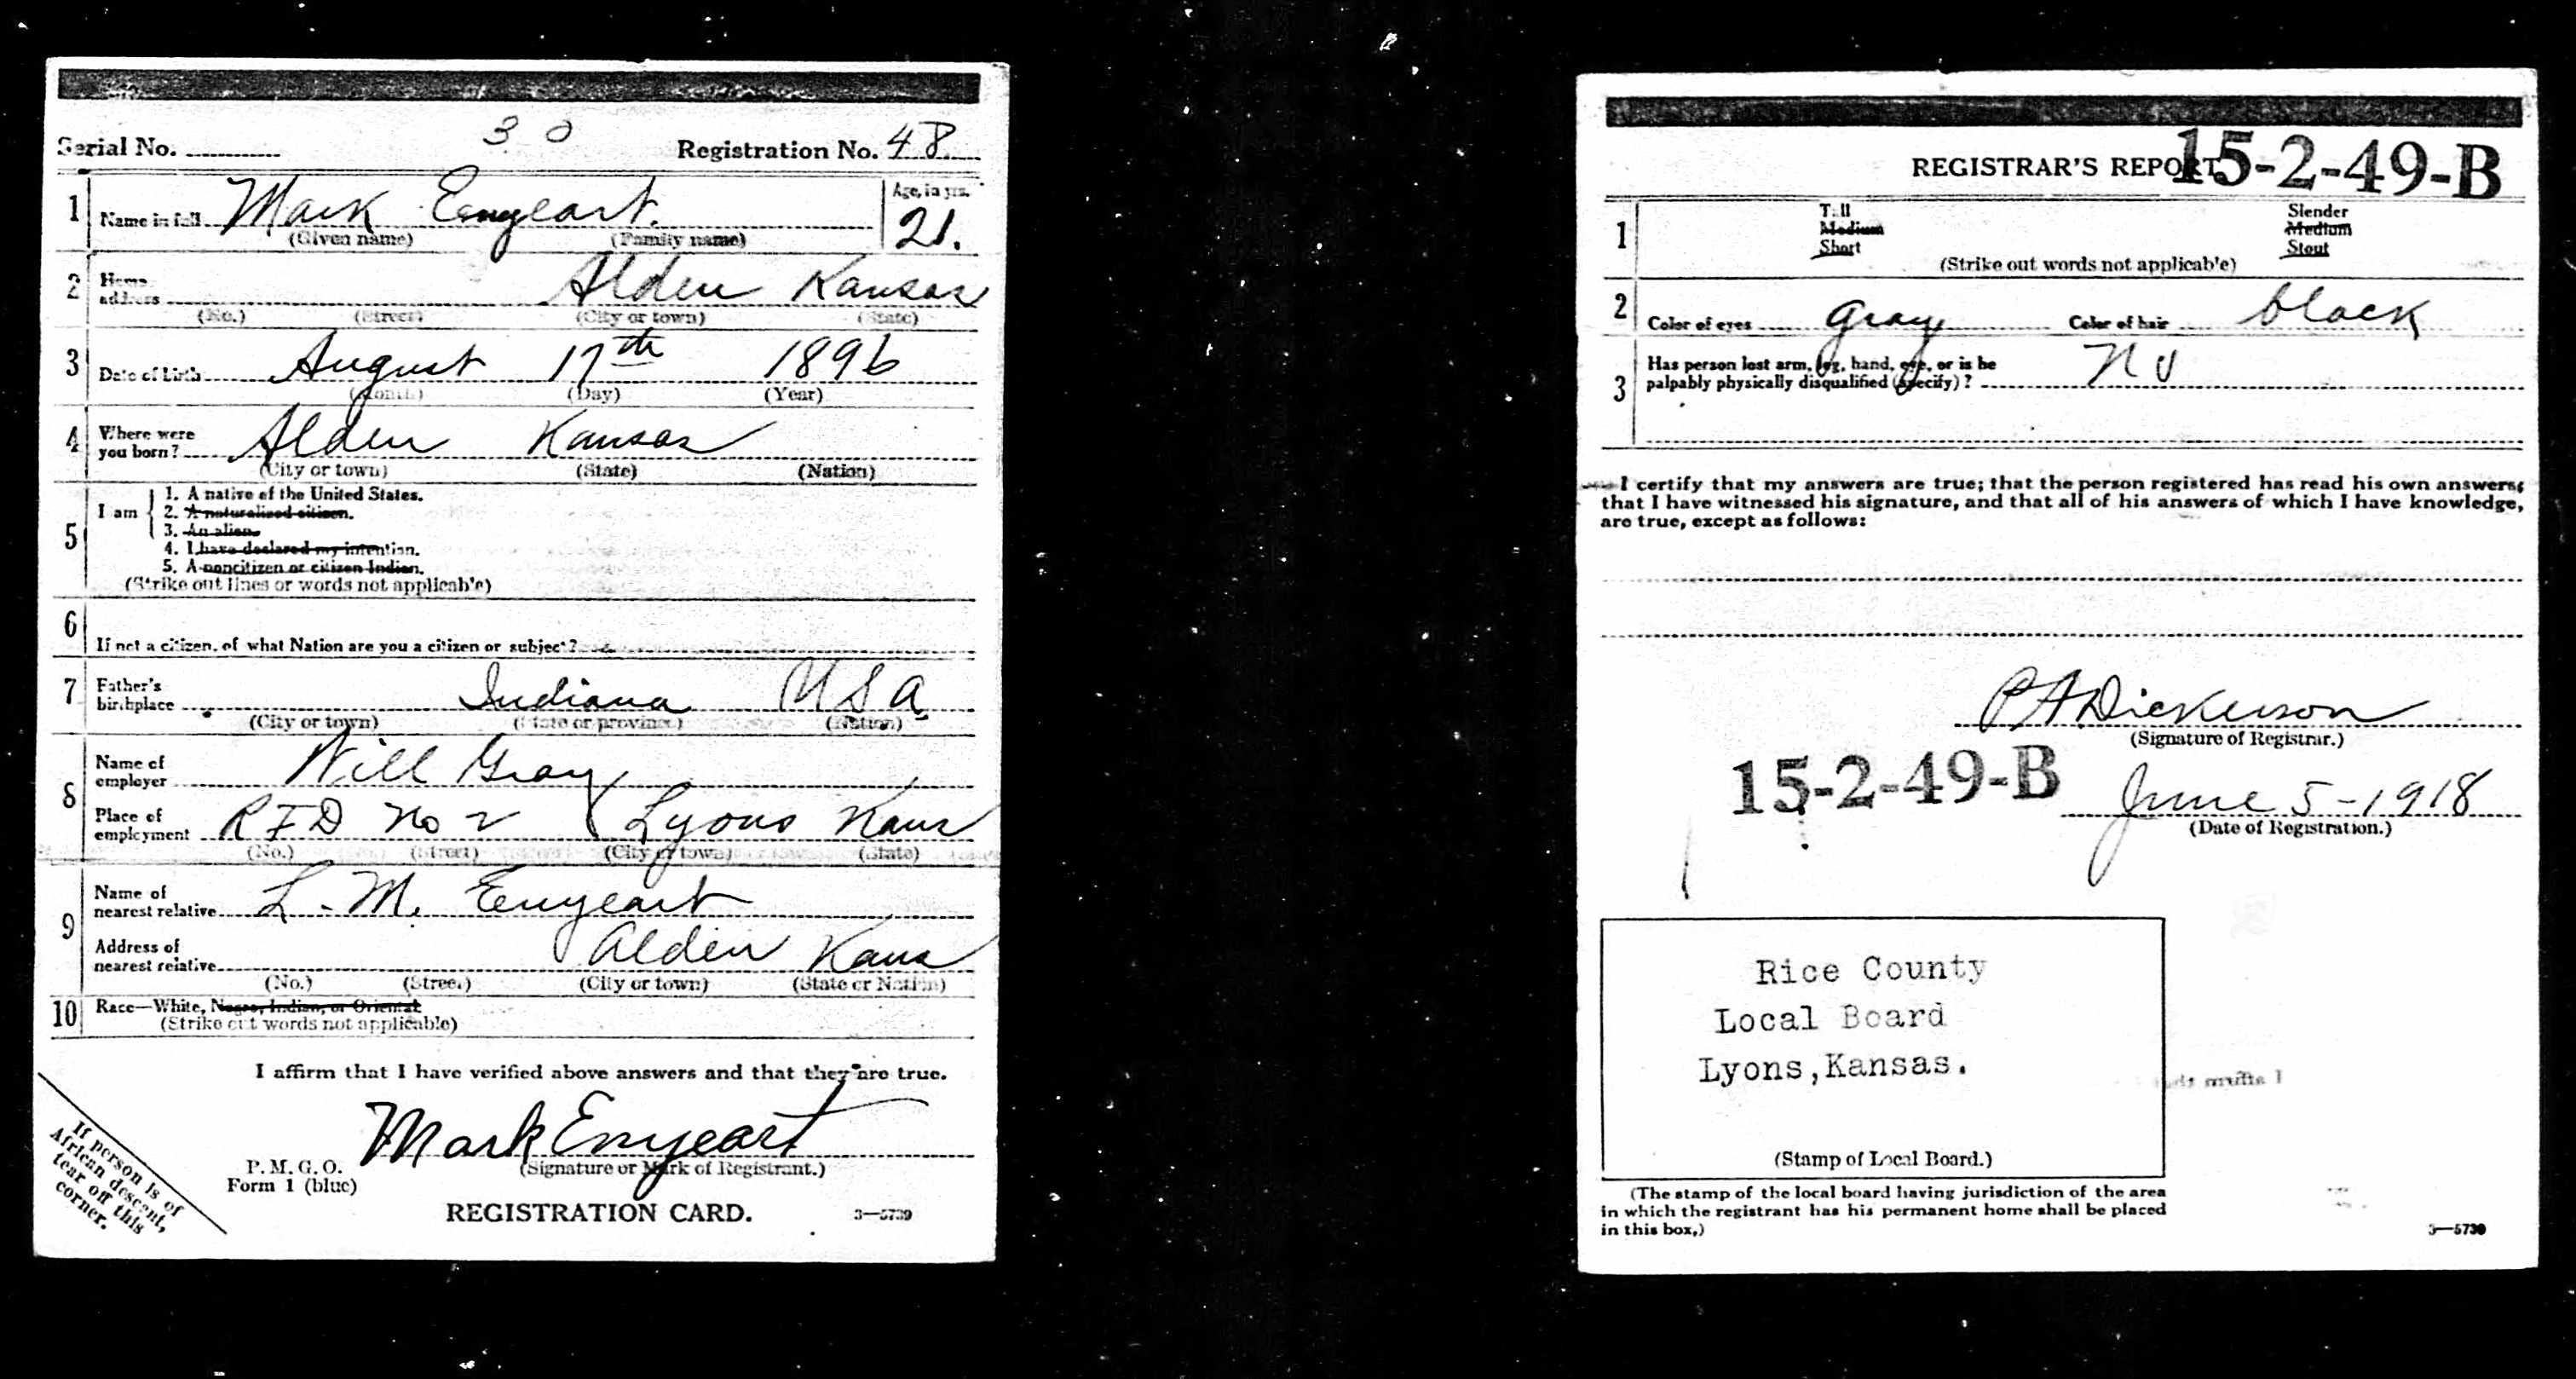 Serial No. 30 Registration No. 48
1 Name in full Mark Enyeart. Age, in yrs. 21.
(Given name) (Family name)
2 Home address Alden Kansas
(No.) (Street) (City or town) (State)
3 Date of birth August 17th 1896
(Month) (Day) (Year)
4 Where were you born? Alden Kansas
(City or town) (State) (Nation)
5 I am
1. A native of the United States.
2. A naturalized citizen.
3. An alien.
4. I have declared my intention.
5. A noncitizen or citizen Indian.
(Strike out lines or words not applicable)
6 If not a citizen, of what Nation are you a citizen or subject?
7 Father's birthplace Indiana U S A.
(City or town) (State or province) (Nation)
8 Name of employer Will Gray
Place of employment R F D No 2 Lyons Kans
(No.) (Street) (City or town) (State)
9 Name of nearest relative L. M. Enyeart
Address of nearest relative Alden Kans
(No.) (Street) (City or town) (State or Nation)
10 Race—White, Negro, Indian, or Oriental
(Strike out words not applicable)
I affirm that I have verified above answers and that they are true.
Mark Enyeart
(Signature or Mark of Registrant.)
P. M. G. O.
Form 1 (blue)
REGISTRATION CARD.
3—5739
If person is of
African descent,
tear off this
corner.
REGISTRAR'S REPORT
15-2-49-B
1 Tall Slender
Medium Medium
Short Stout
(Strike out words not applicable)
2 Color of eyes gray Color of hair black
3 Has person lost arm, leg, hand, eye, or is he
palpably physically disqualified (specify)? No
I certify that my answers are true; that the person registered has read his own answers;
that I have witnessed his signature, and that all of his answers of which I have knowledge,
are true, except as follows:
P A Dickerson
(Signature of Registrar.)
15-2-49-B
June 5-1918
(Date of Registration.)
Rice County
Local Board
Lyons,Kansas.
(Stamp of Local Board.)
(The stamp of the local board having jurisdiction of the area
in which the registrant has his permanent home shall be placed
in this box.)
3—5739